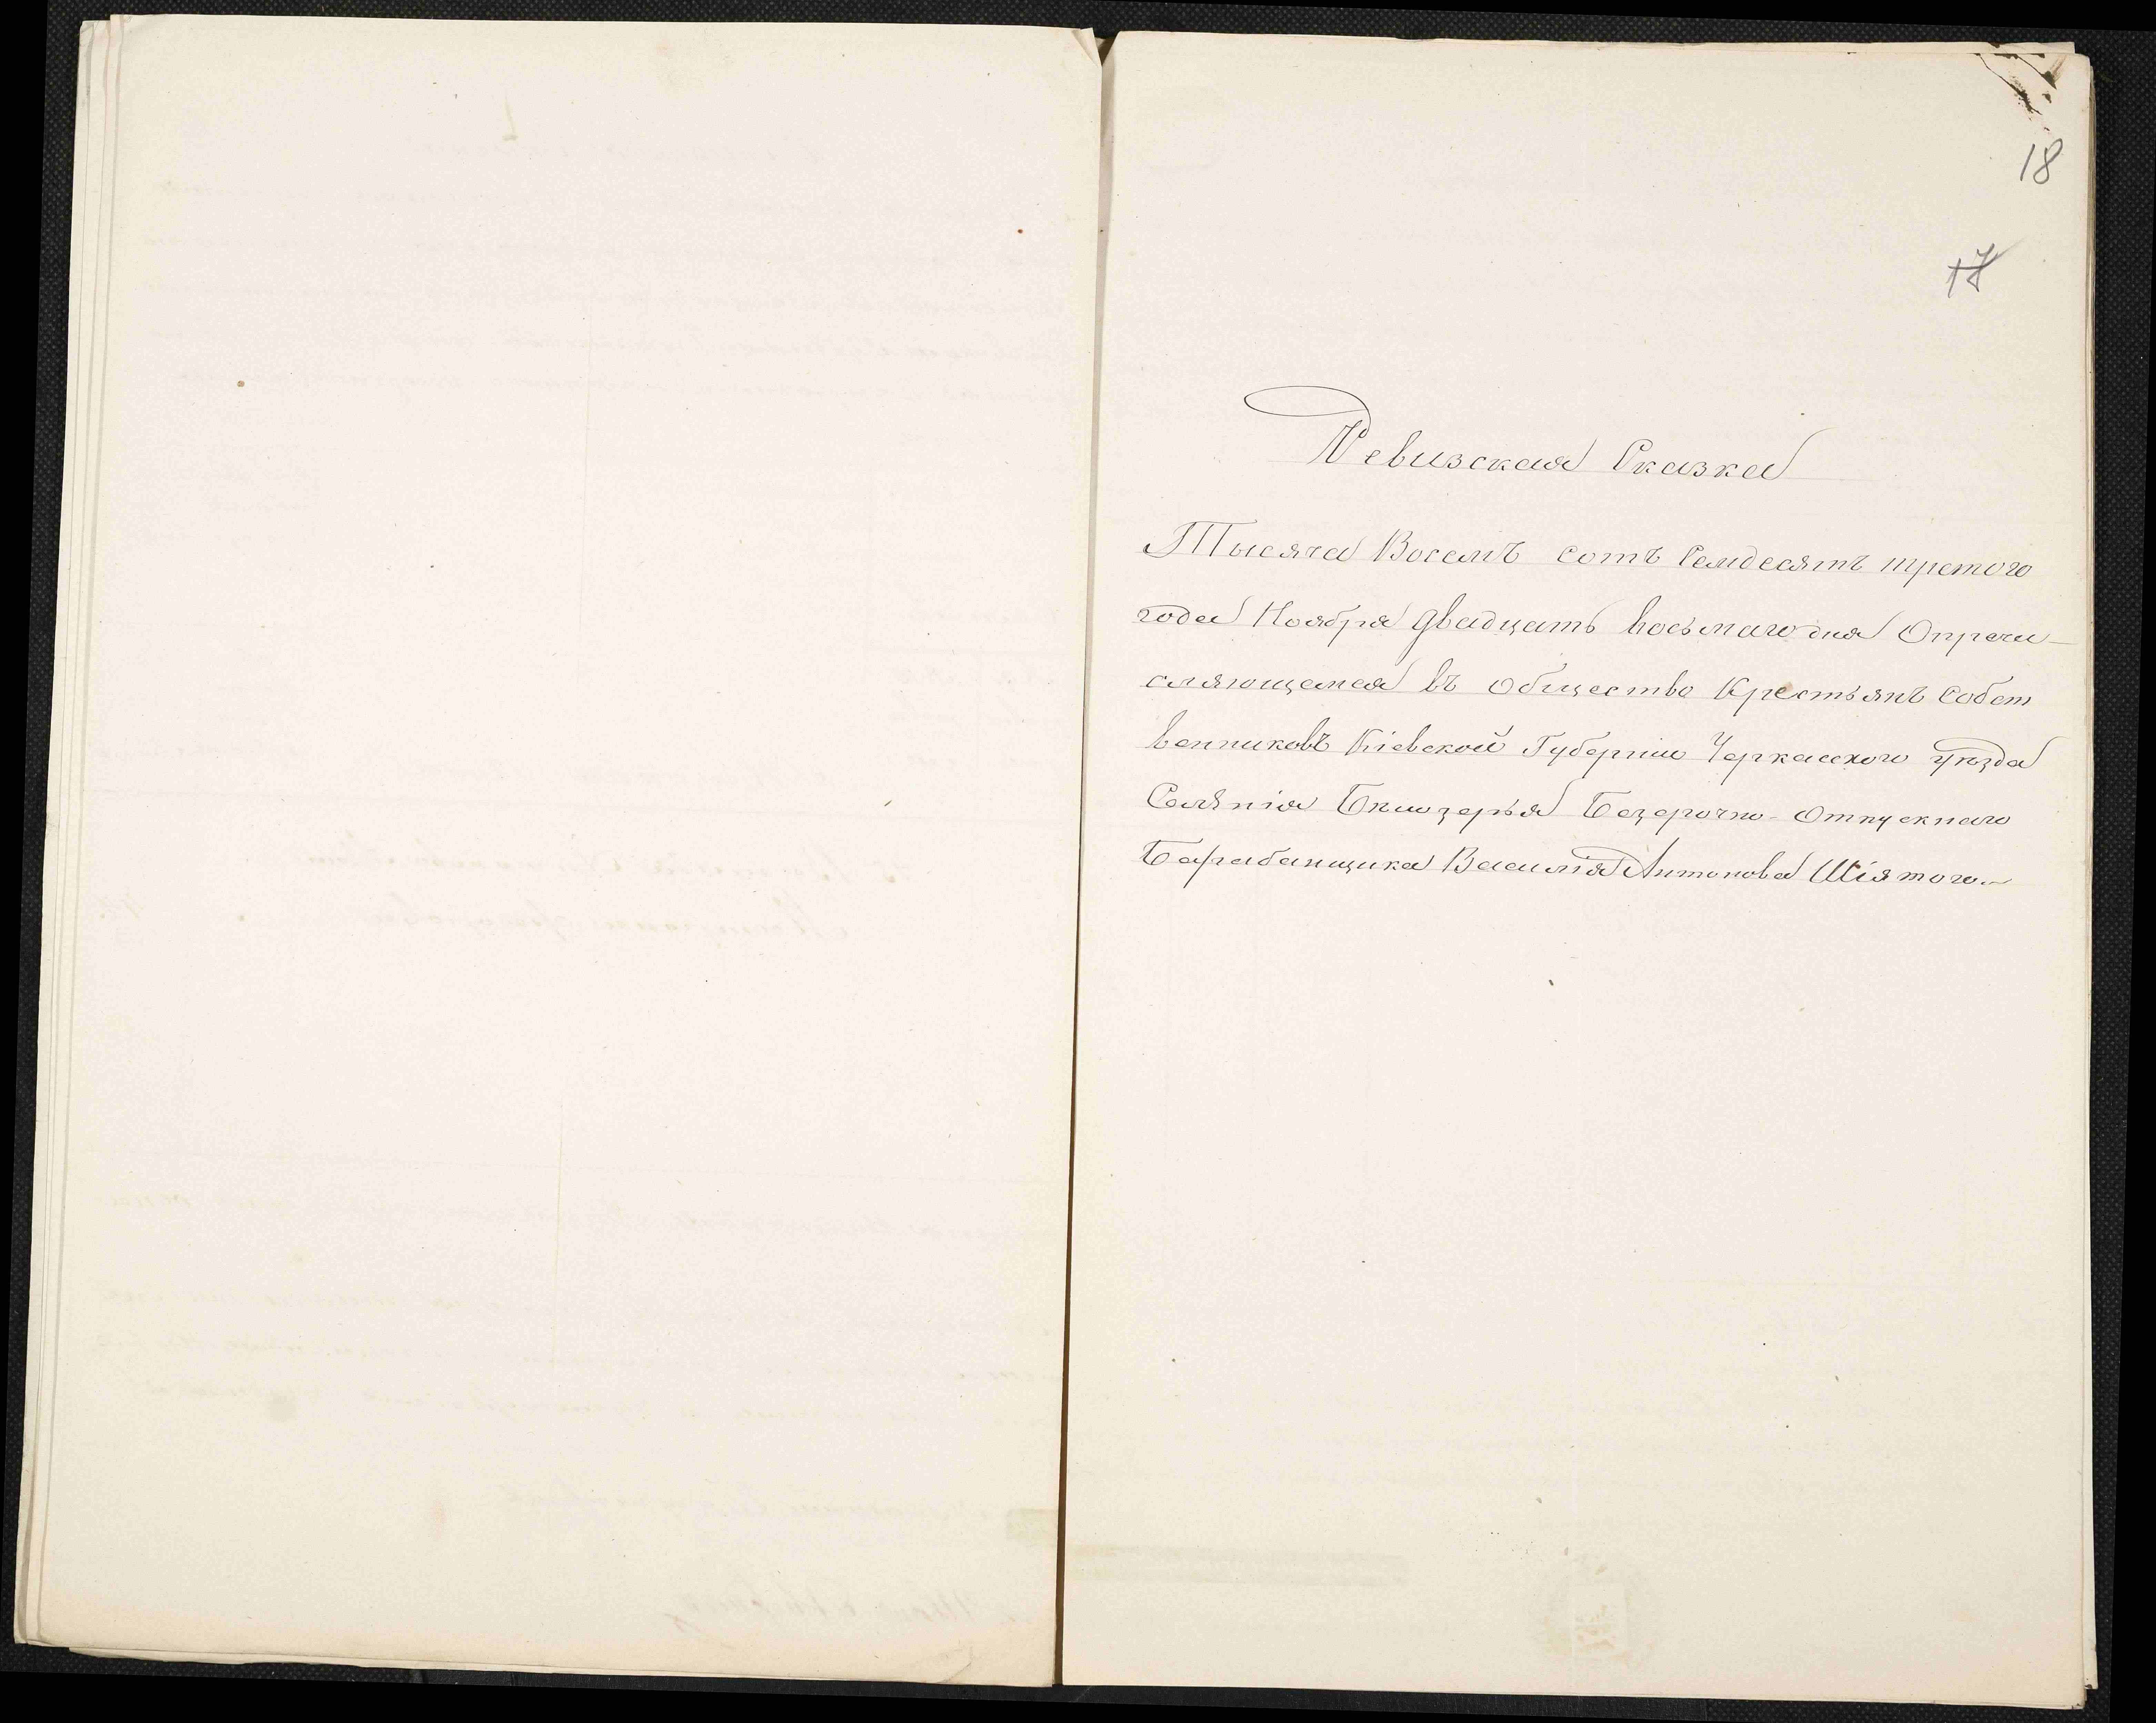 18
17
Ревизская Сказка
Тысяча Восемъ сотъ Семдесятъ третого
года Ноября двадцать восьмаго дня О причи-
сляющемся въ общество Крестьянъ Собст
венниковъ Кіевской Губерніи Черкасского уѣзда
Селѣнія Бѣлозерья Безсрочно-Отпускнаго
Барабанщика Василія Антонова Шіятого